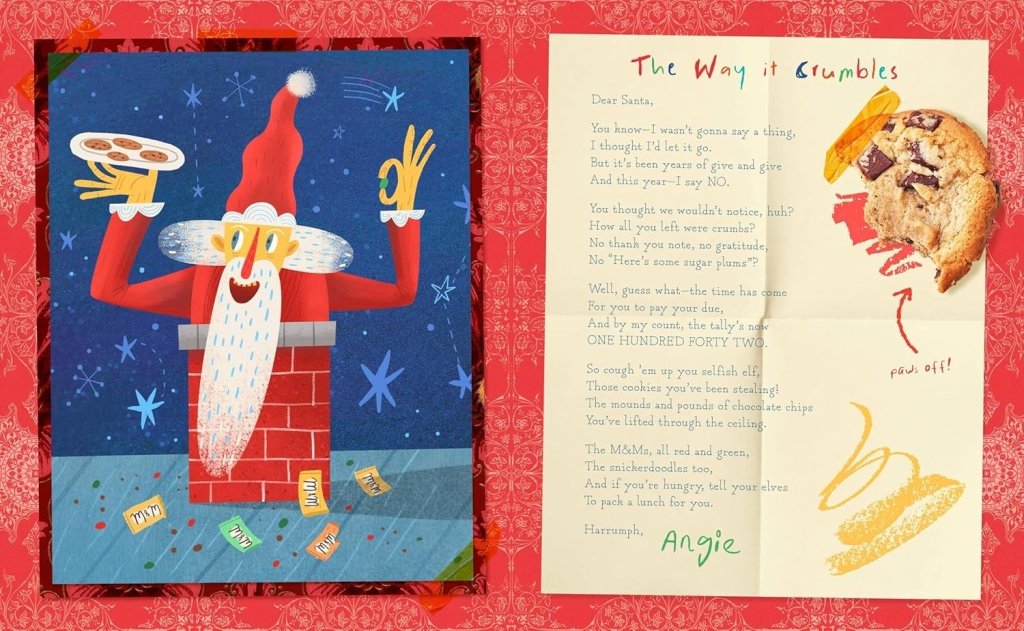 The Way it Crumbles
Dear Santa,
You know—I wasn't gonna say a thing,
I thought I'd let it go.
But it's been years of give and give
And this year—I say NO.
You thought we wouldn't notice, huh?
How all you left were crumbs?
No thank you note, no gratitude,
No "Here's some sugar plums"?
Well, guess what—the time has come
For you to pay your due,
And by my count, the tally's now
ONE HUNDRED FORTY TWO.
So cough 'em up you selfish elf,
Those cookies you've been stealing!
The mounds and pounds of chocolate chips
You've lifted through the ceiling.
The M&Ms, all red and green,
The snickerdoodles too,
And if you're hungry, tell your elves
To pack a lunch for you.
Harrumph,
Angie
paws off!
M&M
M&M
M&M
M&M
M&M